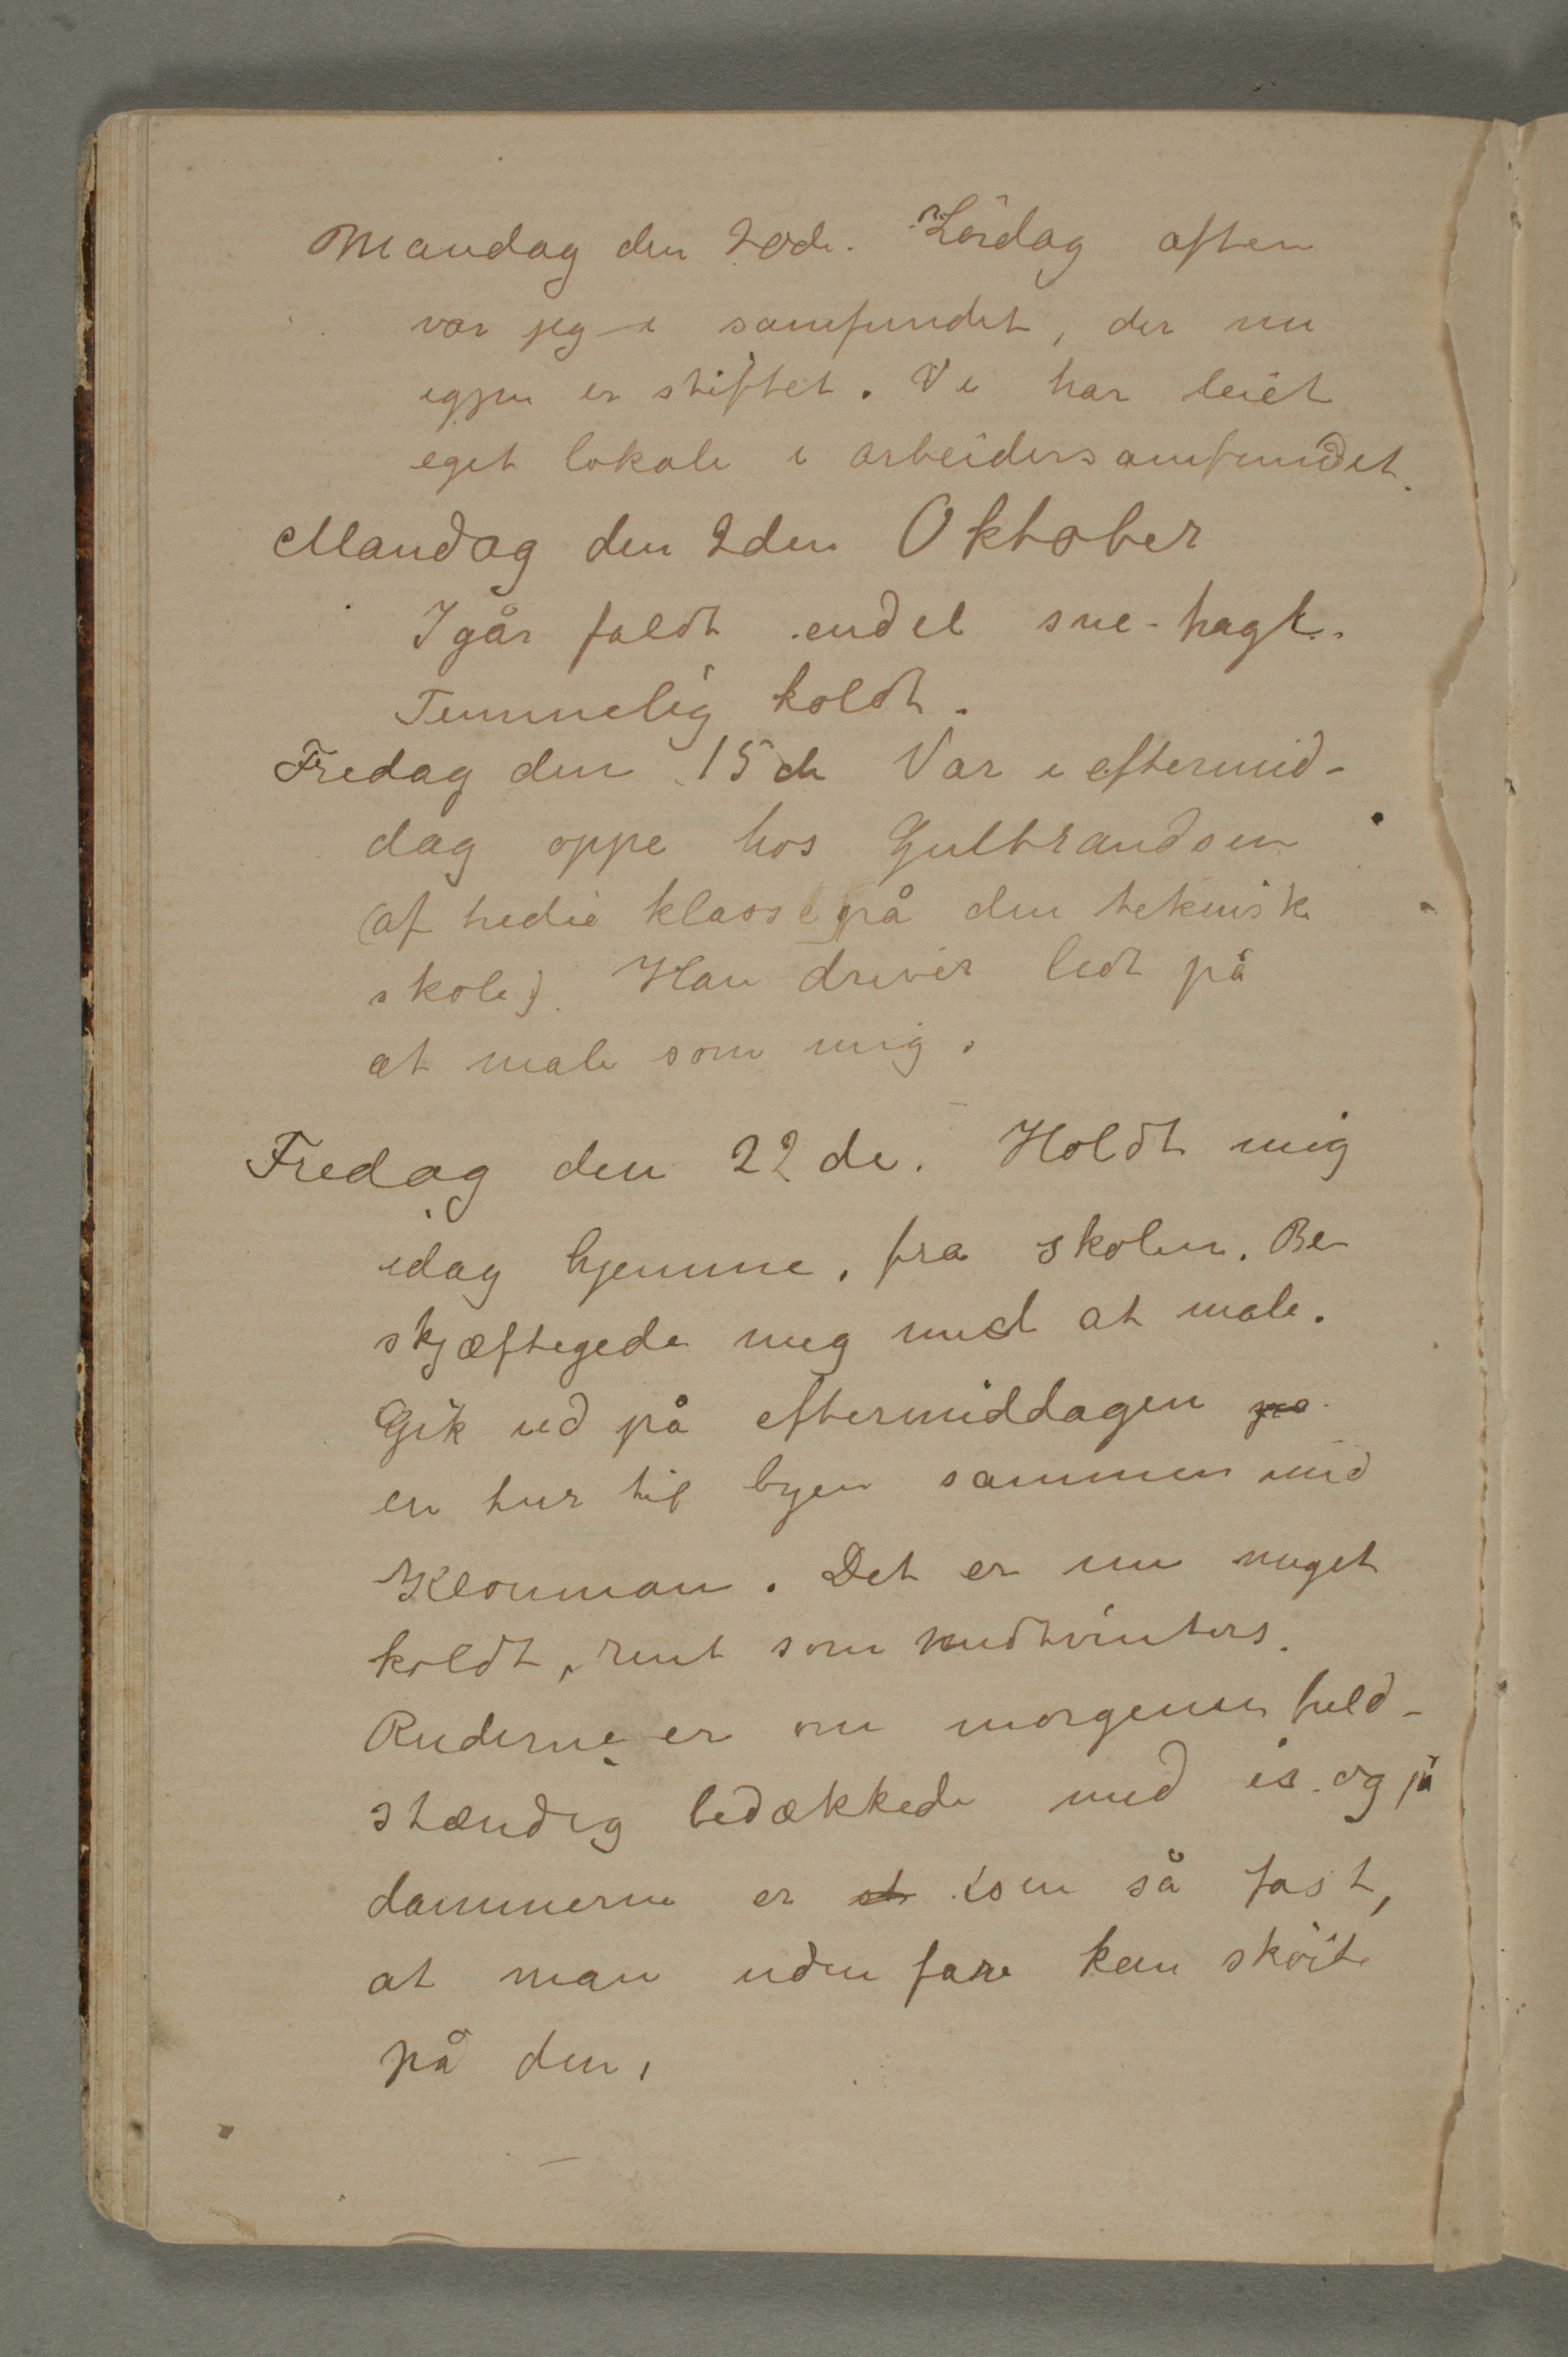 Mandag den 20de. Lördag aften
var jeg i samfundet, der nu
igjen er stiftet. Vi har leiet
eget lokale i arbeidersamfundet.
Mandag den 2den Oktober
Igår faldt endel sne-hagl.
Temmelig koldt.
Fredag den 15de Var i eftermid-
dag oppe hos Gulbrandsen
(af tredie klasse på den teknisk
skole). Han driver lidt på
at male som mig.
Fredag den 22de. Holdt mig
idag hjemme, fra skolen. Be
skjæftigede mig med at male.
Gik ud på eftermiddagen
en tur til byen sammen med
Klouman. Det er nu meget
koldt, rent som midtvinters.
Ruderne er om morgenen fuld-
stændig bedækkede med is og på
dammerne er isen så fast,
at man uden fare kan sköite
på den,